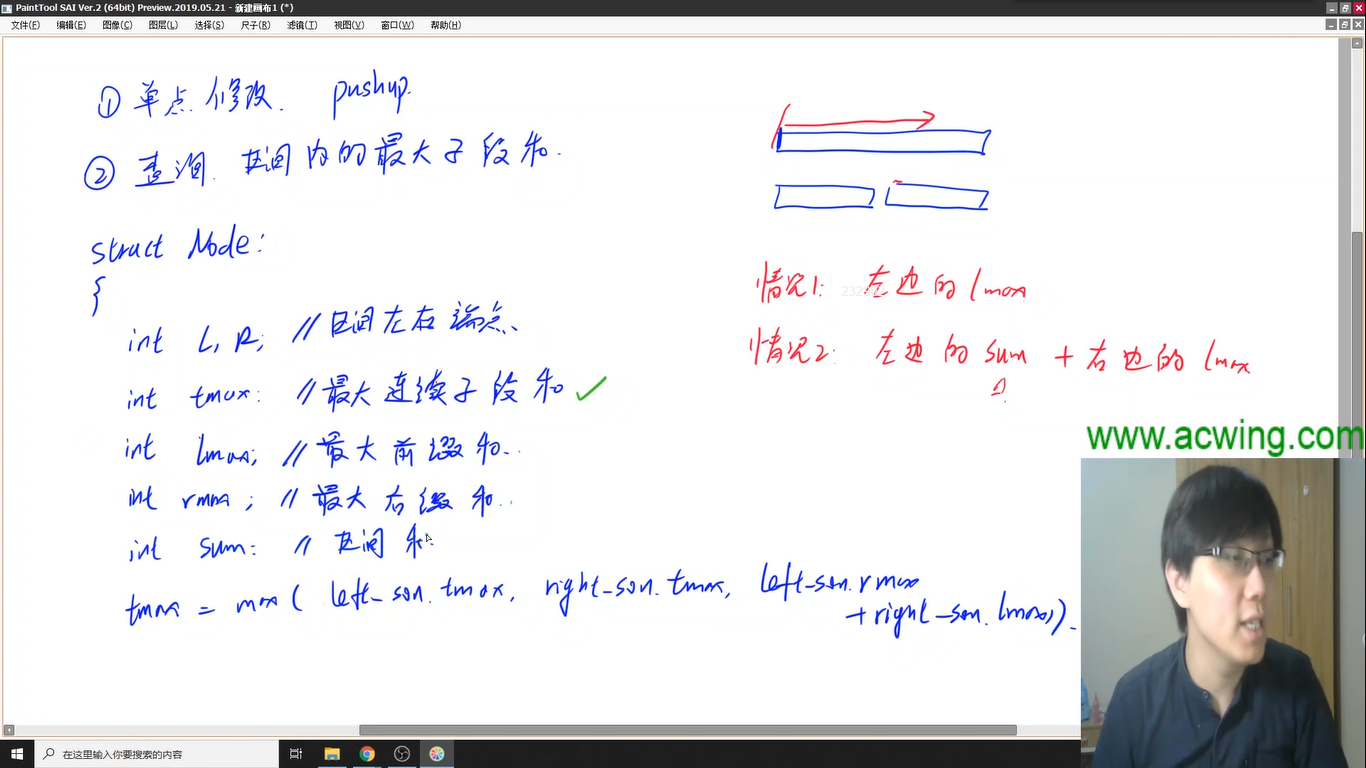 PaintTool SAI Ver.2 (64bit) Preview.2019.05.21 - 新建画布1 (*)
文件(F) 编辑(E) 图像(C) 图层(L) 选择(S) 尺子(R) 滤镜(T) 视图(V) 窗口(W) 帮助(H)
① 单点修改. pushup.
② 查询. 区间内的最大子段和.
struct Node:
{
int L, R; // 区间左右端点、
int tmax: // 最大连续子段和 ✓
int lmax; // 最大前缀和.
int rmax; // 最大右缀和.
int sum: // 区间和
tmax = max( left_son.tmax, right_son.tmax, left_son.rmax
+ right_son.lmax).
情况1: 左边的 lmax
情况2: 左边的 sum + 右边的 lmax
www.acwing.com
在这里输入你要搜索的内容